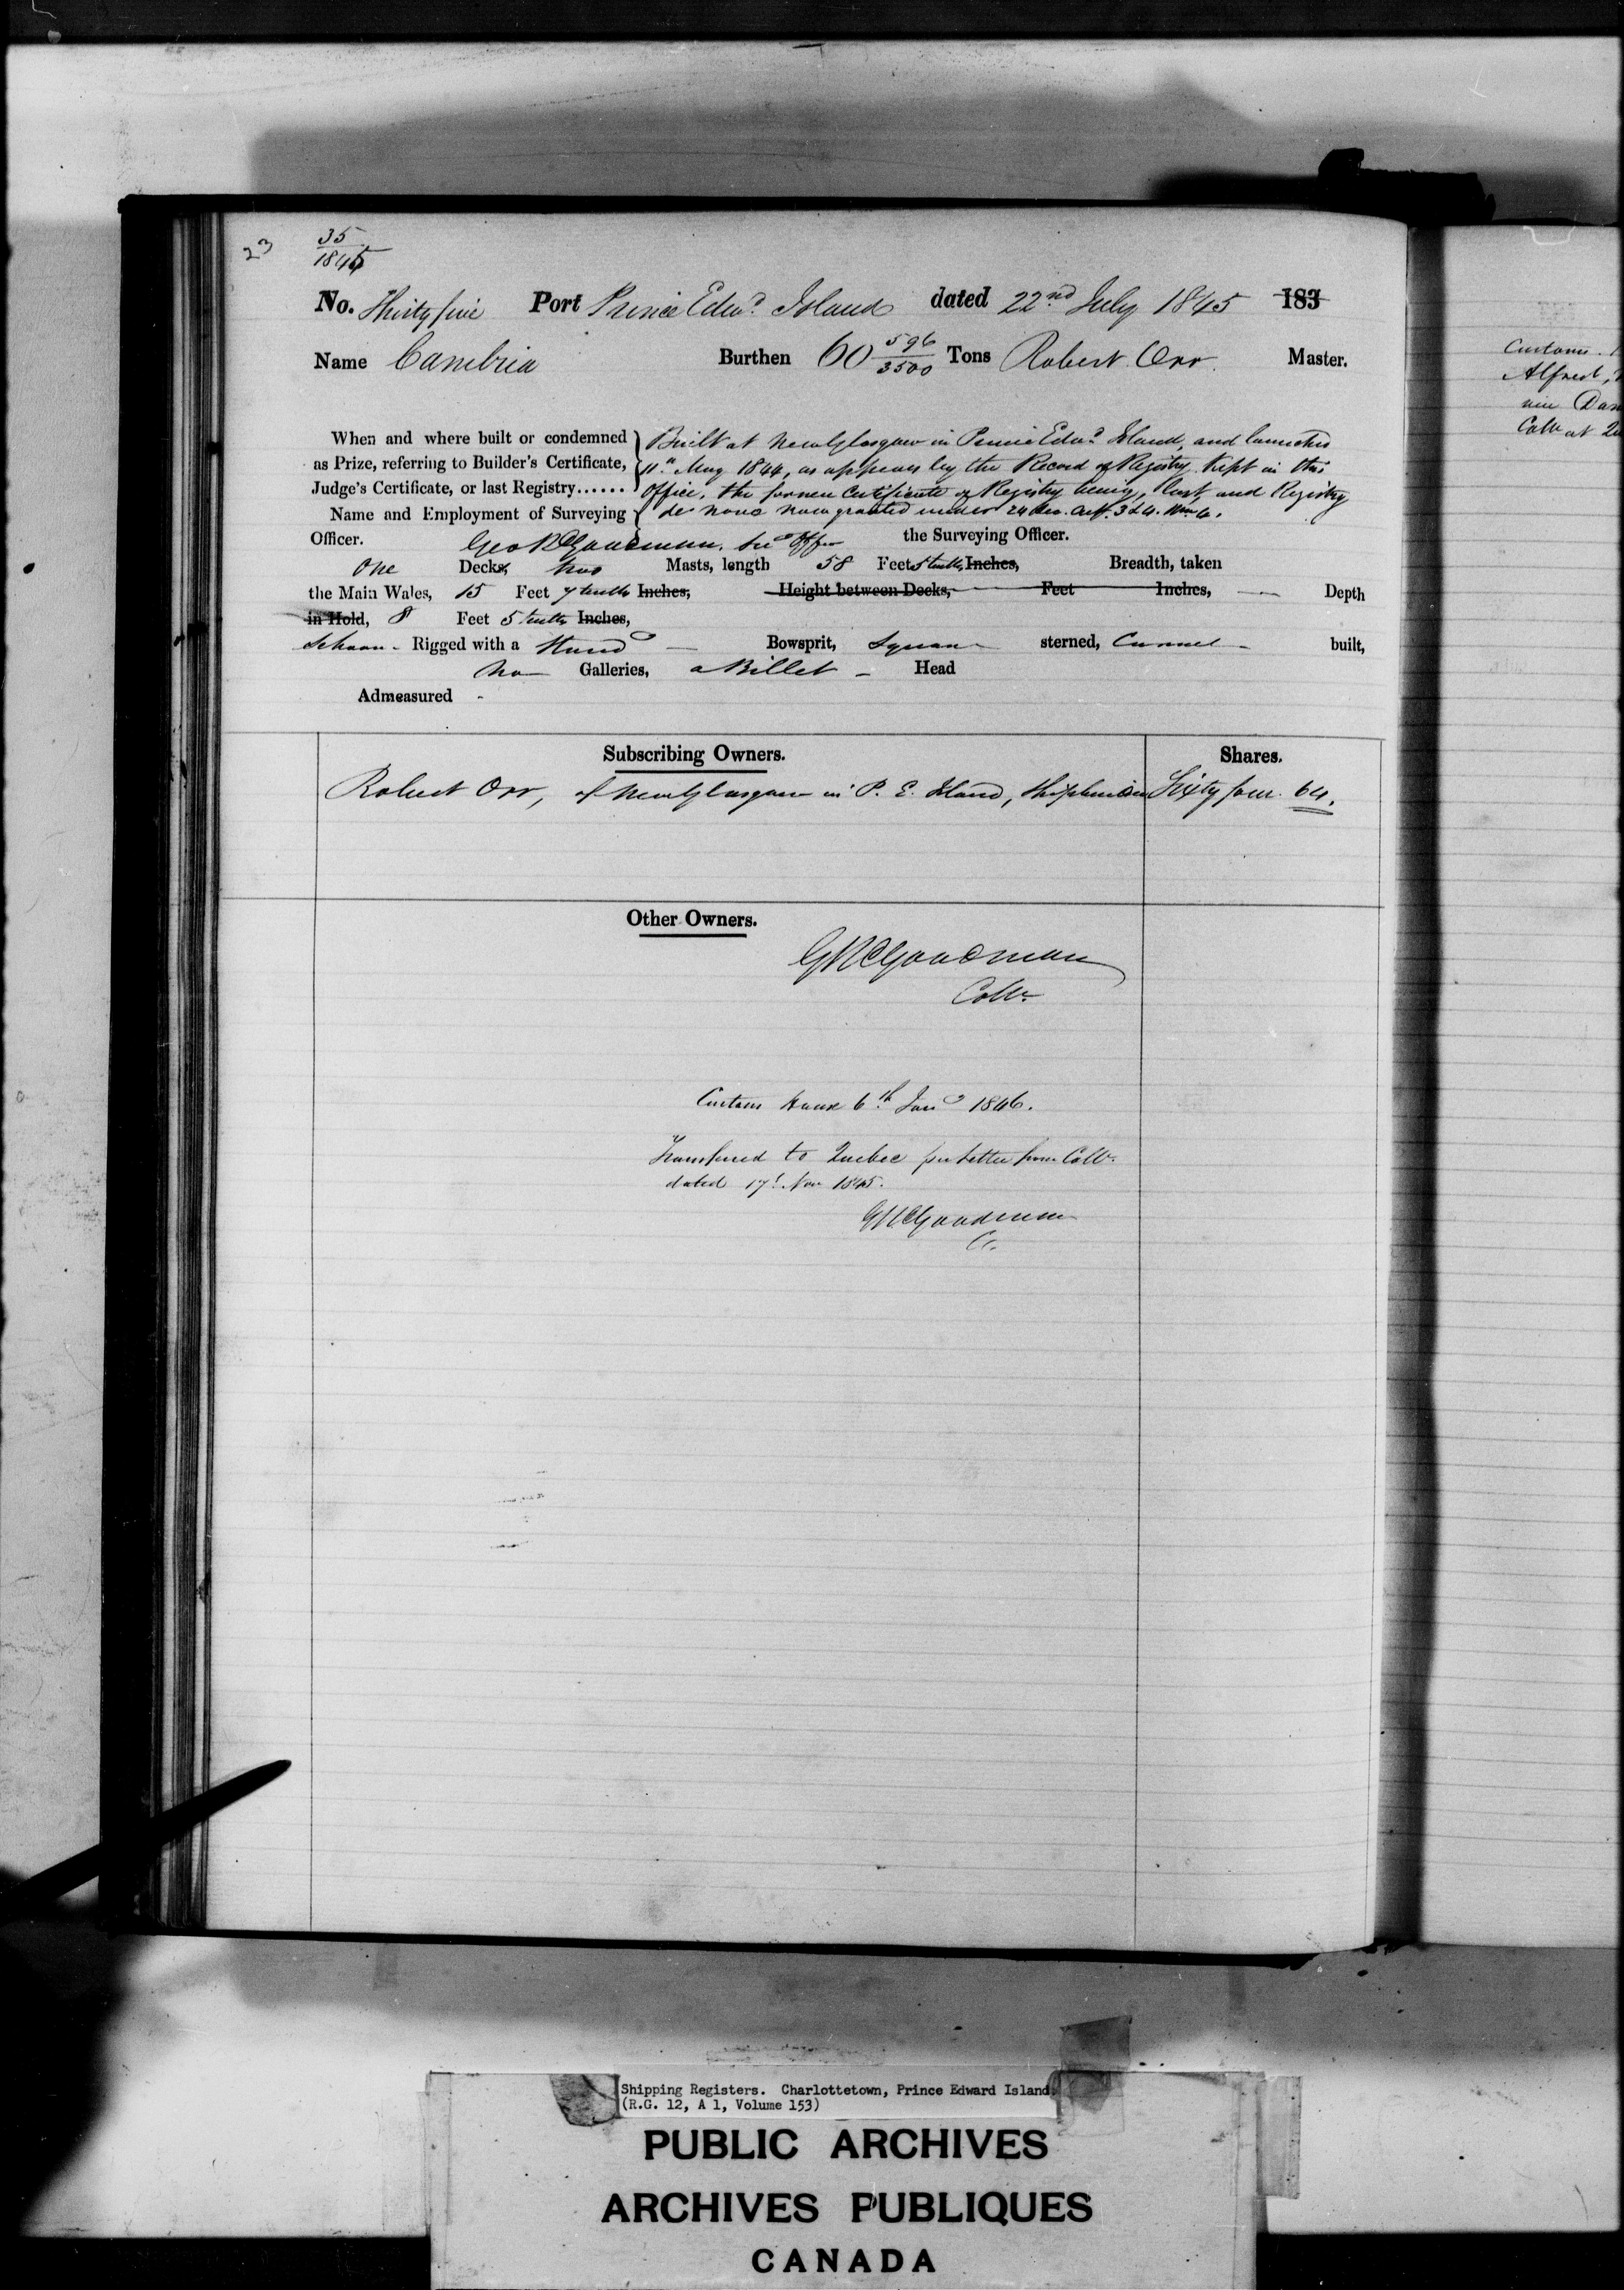 23
35
1845
No. Thirty five Port Prince Edwd Island dated 22nd July 1845 183
Name Cambria Burthen 60 596/3500 Tons Robert Orr Master.
When and where built or condemned
as Prize, referring to Builder's Certificate,
Judge's Certificate, or last Registry......
Built at New Glasgow in Prince Edwd Island, and launched
11th May 1844, as appears by the Record of Registry kept in this
Office, the former Certificate of Registry being lost and Registry
de novo now granted under 24 Sec. Act. 3 & 4. Wm 4.
Name and Employment of Surveying
Officer. Geo R Goodman, the Surveying Officer.
One Decks, two Masts, length 58 Feet 5 tenths Inches, Breadth, taken
the Main Wales, 15 Feet 7 tenths Inches, Height between Decks, Feet Inches, Depth
in Hold, 8 Feet 5 tenths Inches,
Schoonr Rigged with a Stand Bowsprit, Square sterned, Carvel built,
no Galleries, a Billet Head
Admeasured -
Subscribing Owners. Shares.
Robert Orr, of New Glasgow in P. E. Island, Shipbuilder Sixty four 64.
Other Owners.
GRGoodman
Collr
Custom House 6th Jany 1846.
Transferred to Quebec per letter from Collr
dated 17th Nov 1845.
GRGoodman
Cr.
Customs
Alfred,
Collr at
Shipping Registers. Charlottetown, Prince Edward Island
(R.G. 12, A 1, Volume 153)
PUBLIC ARCHIVES
ARCHIVES PUBLIQUES
CANADA